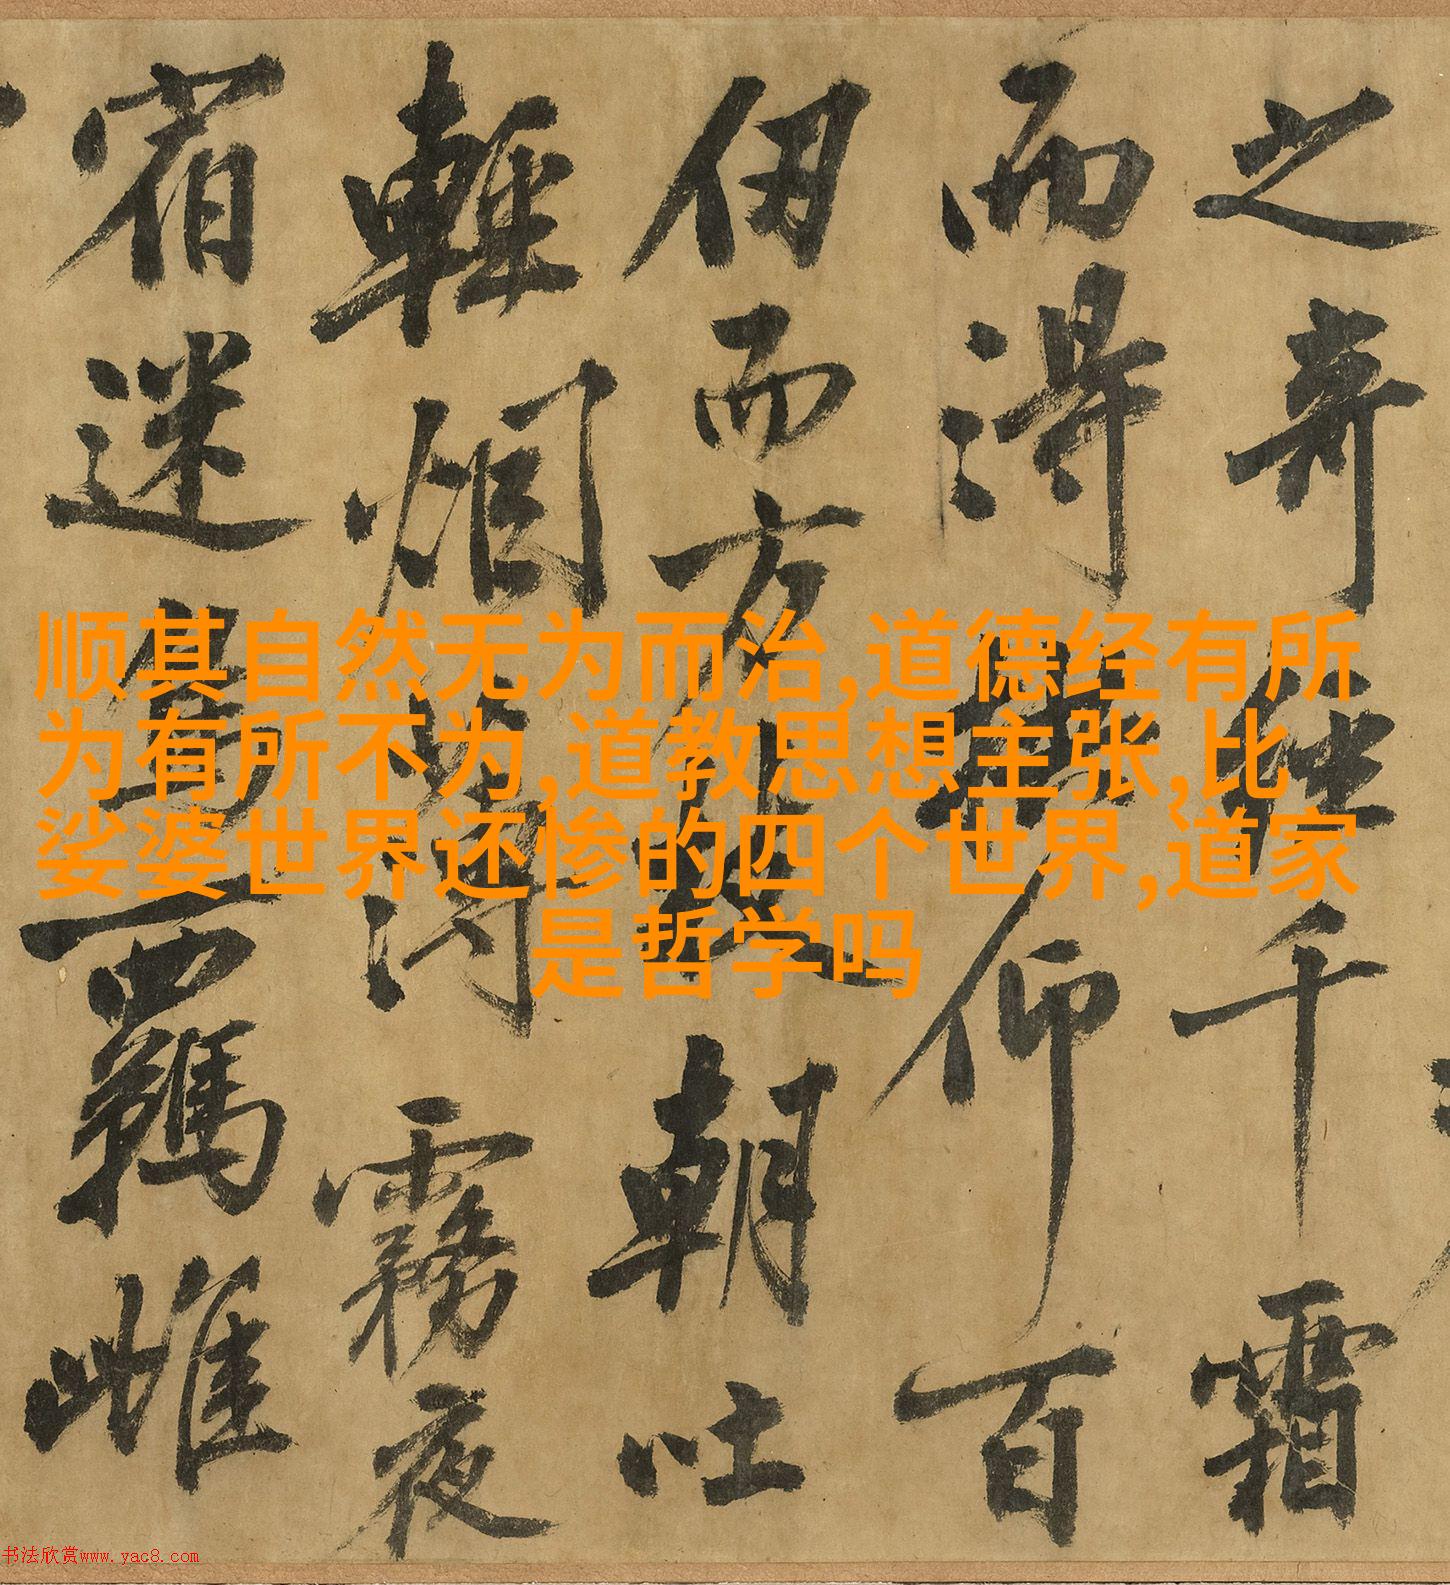 之奇經千霜
而得拱仰百
仞而方枝朝吐
輕烟薄霧夜
宿迷鳥羈雌
顺其自然无为而治,道德经有所
为有所不为,道教思想主张,比
娑婆世界还惨的四个世界,道家
是哲学吗
书法欣赏www.yac8.com